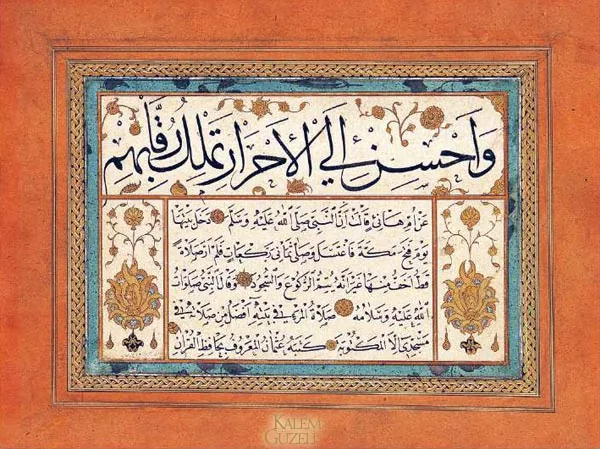 واحسن إلي الأحرار تملك رقابهم
عن أم هانئ قالت أن النبي صلى الله عليه وسلم دخل بيتها
يوم فتح مكة فاغتسل وصلى ثماني ركعات فلم أر صلاة
قط أخف منها غير أنه يتم الركوع والسجود وقال النبي صلوات
الله عليه وسلامه صلاة المرء في بيته أفضل من صلاته في
مسجدي هذا إلا المكتوبة كتبه عثمان المعروف بحافظ القرآن
KALEM
GUZELI